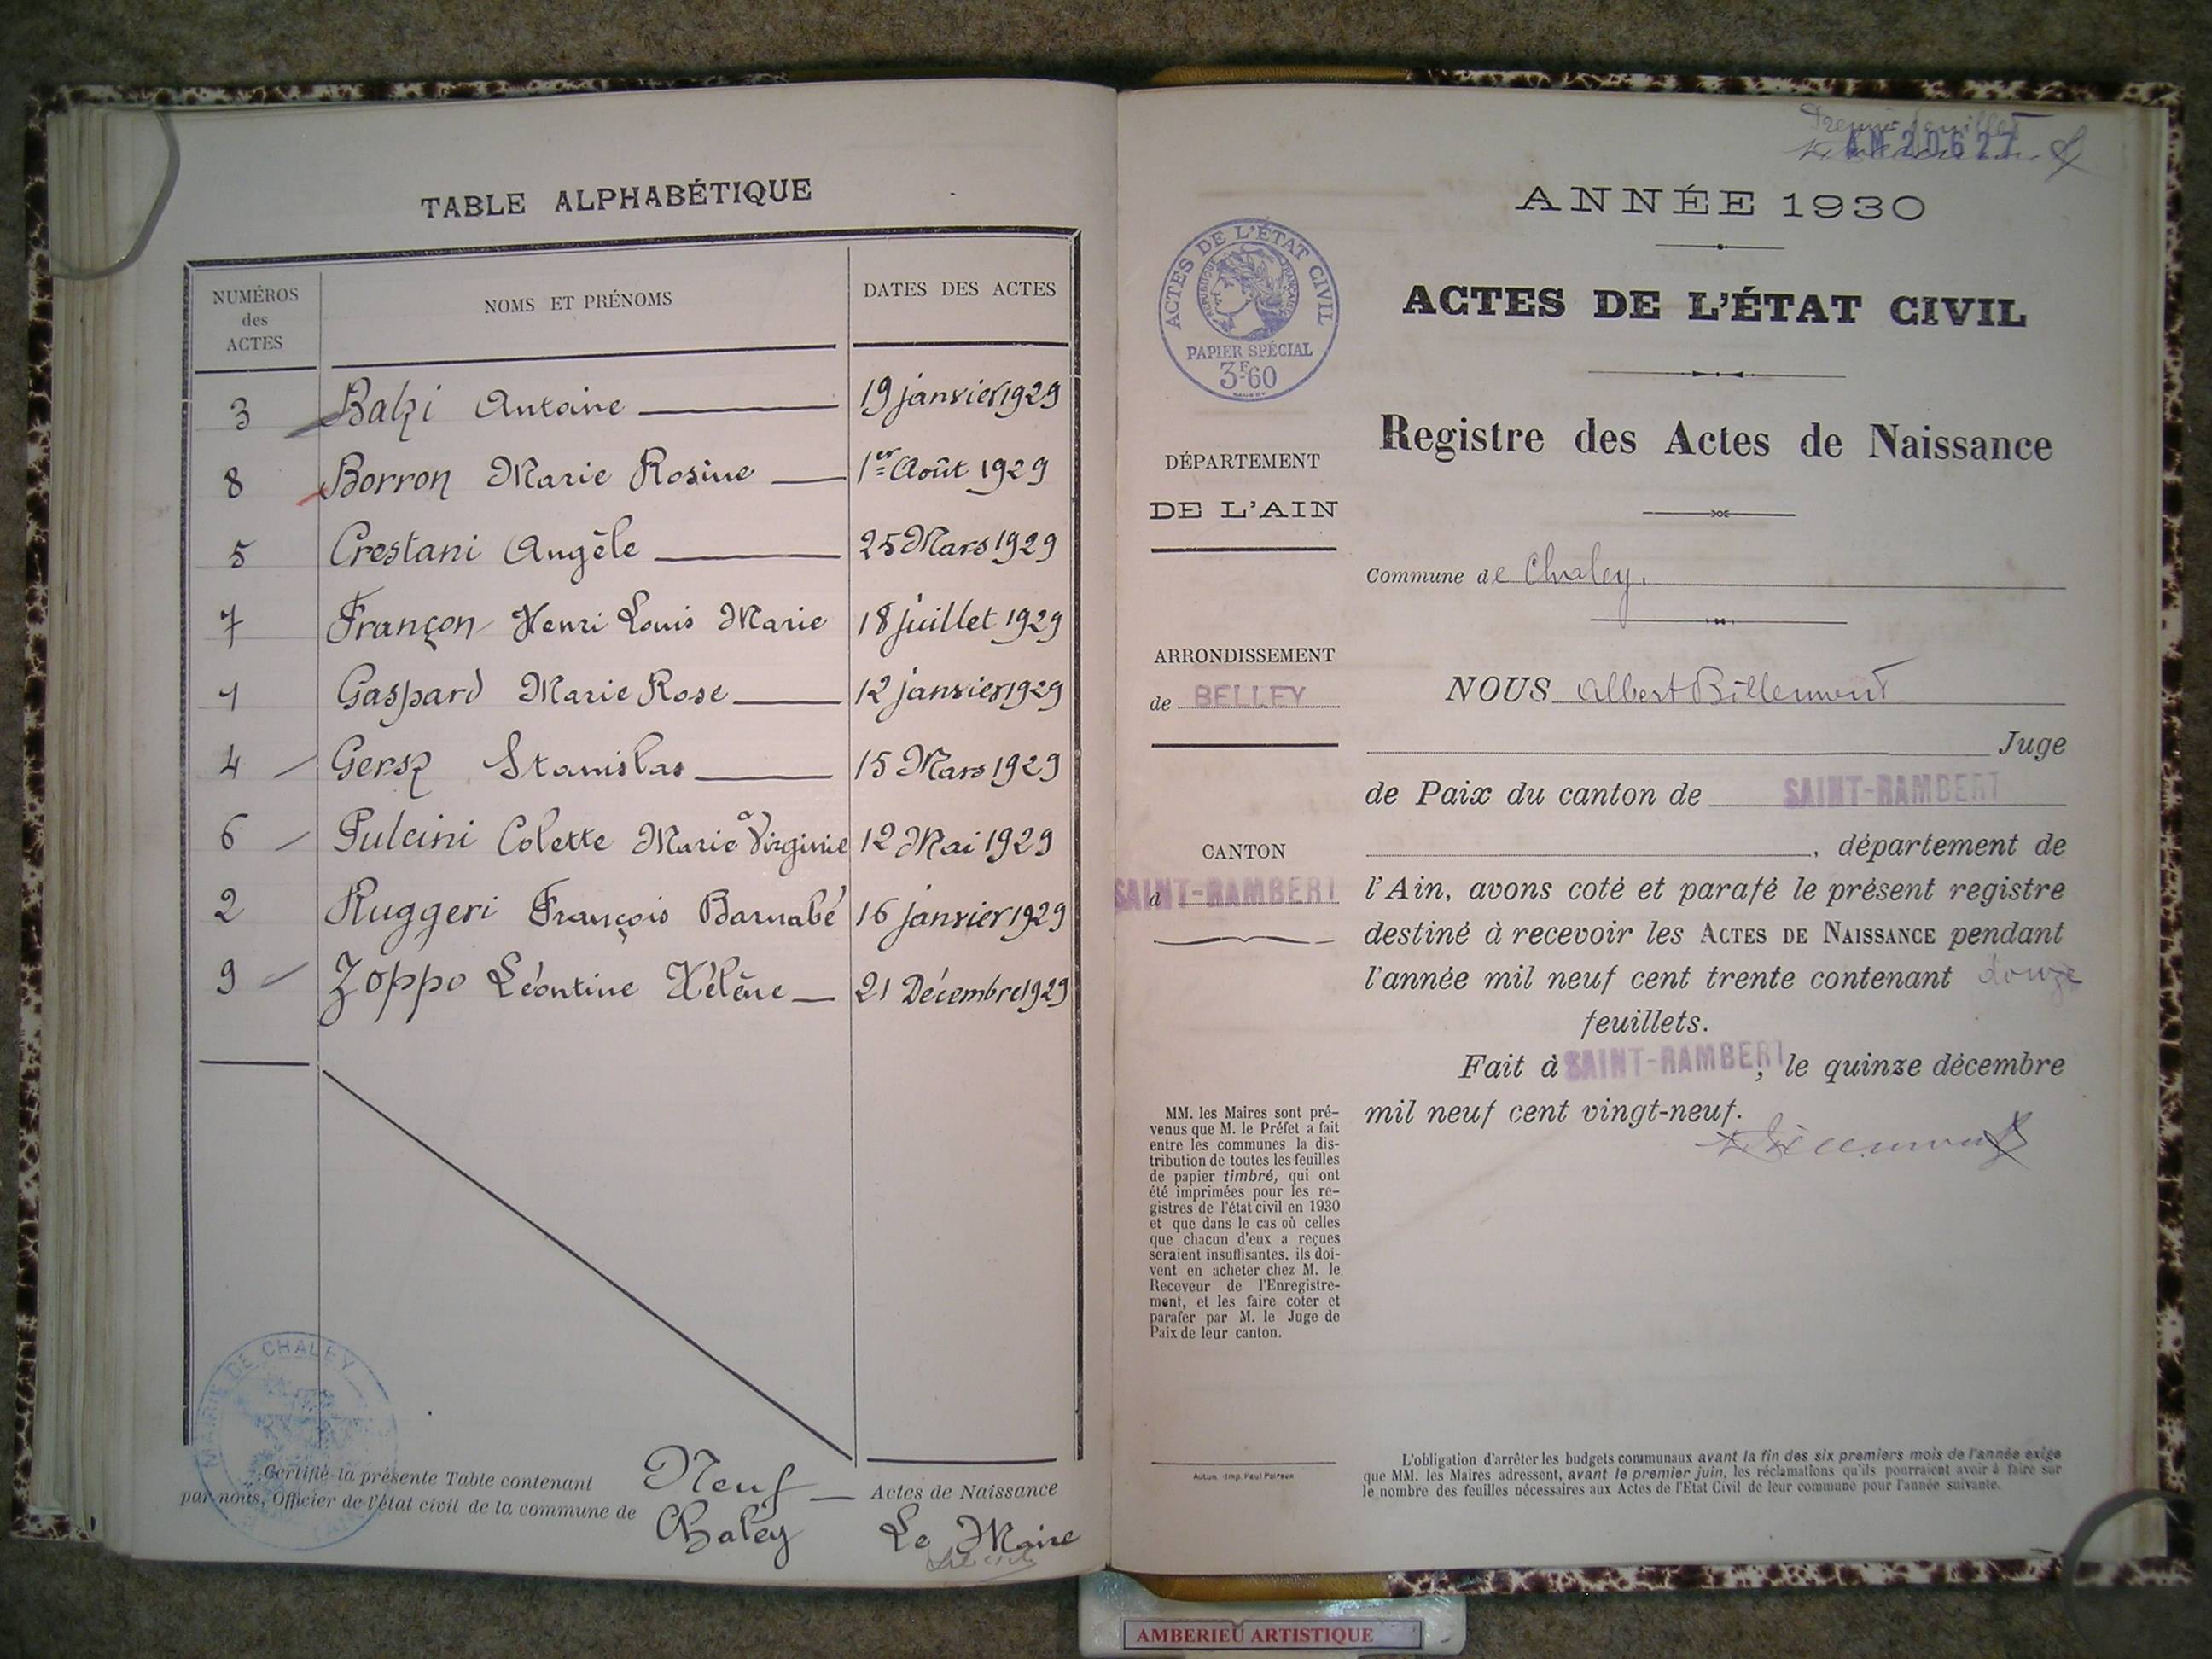 TABLE ALPHABÉTIQUE
NUMÉROS
des
ACTES
NOMS ET PRÉNOMS
DATES DES ACTES
3 Balzi Antoine 19 janvier 1929
8 Borron Marie Rosine 1er Août 1929
5 Crestani Angèle 25 Mars 1929
7 Françon Henri Louis Marie 18 juillet 1929
1 Gaspard Marie Rose 12 janvier 1929
4 Gersz Stanislas 15 Mars 1929
6 Pulcini Colette Marie Virginie 12 Mai 1929
2 Ruggeri François Barnabé 16 janvier 1929
9 Zoppo Léontine Hélène 21 Décembre 1929
MAIRIE DE CHALEY
Certifié la présente Table contenant Neuf Actes de Naissance
par nous, Officier de l'état civil de la commune de Chaley Le Maire
Premier feuillet
AM 20627
ANNÉE 1930
ACTES DE L'ÉTAT CIVIL
RÉPUBLIQUE FRANÇAISE
PAPIER SPÉCIAL
3F60
DÉPARTEMENT
DE L'AIN
ARRONDISSEMENT
de BELLEY
CANTON
d SAINT-RAMBERT
MM. les Maires sont pré-
venus que M. le Préfet a fait
entre les communes la dis-
tribution de toutes les feuilles
de papier timbré, qui ont
été imprimées pour les re-
gistres de l'état civil en 1930
et que dans le cas où celles
que chacun d'eux a reçues
seraient insuffisantes, ils doi-
vent en acheter chez M. le
Receveur de l'Enregistre-
ment, et les faire coter et
parafer par M. le Juge de
Paix de leur canton.
Autun. Imp. Paul Perneun
ACTES DE L'ÉTAT CIVIL
Registre des Actes de Naissance
Commune de Chaley.
NOUS Albert Billemont
Juge
de Paix du canton de SAINT-RAMBERT
, département de
l'Ain, avons coté et parafé le présent registre
destiné à recevoir les ACTES DE NAISSANCE pendant
l'année mil neuf cent trente contenant douze
feuillets.
Fait à SAINT-RAMBERT, le quinze décembre
mil neuf cent vingt-neuf.
L'obligation d'arrêter les budgets communaux avant la fin des six premiers mois de l'année exige
que MM. les Maires adressent, avant le premier juin, les réclamations qu'ils pourraient avoir à faire sur
le nombre des feuilles nécessaires aux Actes de l'Etat Civil de leur commune pour l'année suivante.
AMBERIEU ARTISTIQUE